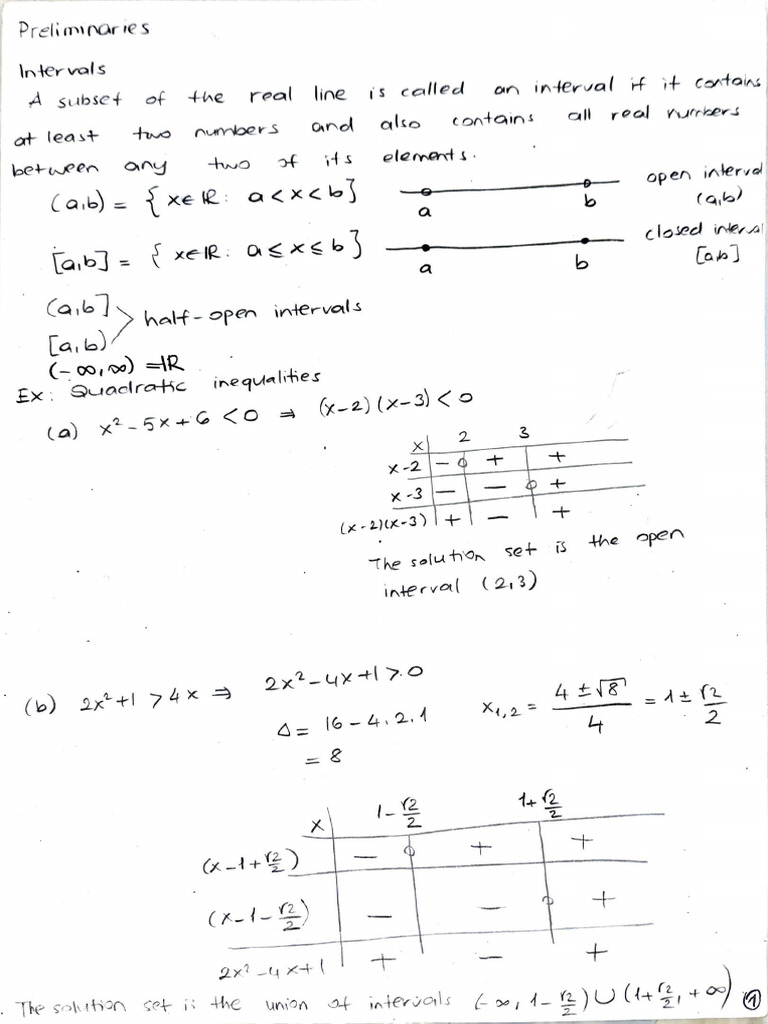 Preliminaries
Intervals
A subset of the real line is called an interval if it contains
at least two numbers and also contains all real numbers
between any two of its elements.
(a,b) = { x∈ℝ: a<x<b} a b open interval (a,b)
[a,b] = { x∈ℝ: a≤x≤b} a b closed interval [a,b]
(a,b]
[a,b) half-open intervals
(-∞,∞) =ℝ
Ex: Quadratic inequalities
(a) x² - 5x + 6 < 0 ⇒ (x-2)(x-3) < 0
x 2 3
x-2 - o + +
x-3 - - o +
(x-2)(x-3) + - +
The solution set is the open
interval (2,3)
(b) 2x²+1 > 4x ⇒ 2x²-4x+1>0
Δ = 16 - 4.2.1 x₁,₂ = (4 ± √8)/4 = 1 ± √2/2
= 8
x 1-√2/2 1+√2/2
(x-1+√2/2) - o + +
(x-1-√2/2) - - o +
2x²-4x+1 + - +
The solution set is the union of intervals (-∞, 1-√2/2) ∪ (1+√2/2, +∞) 1